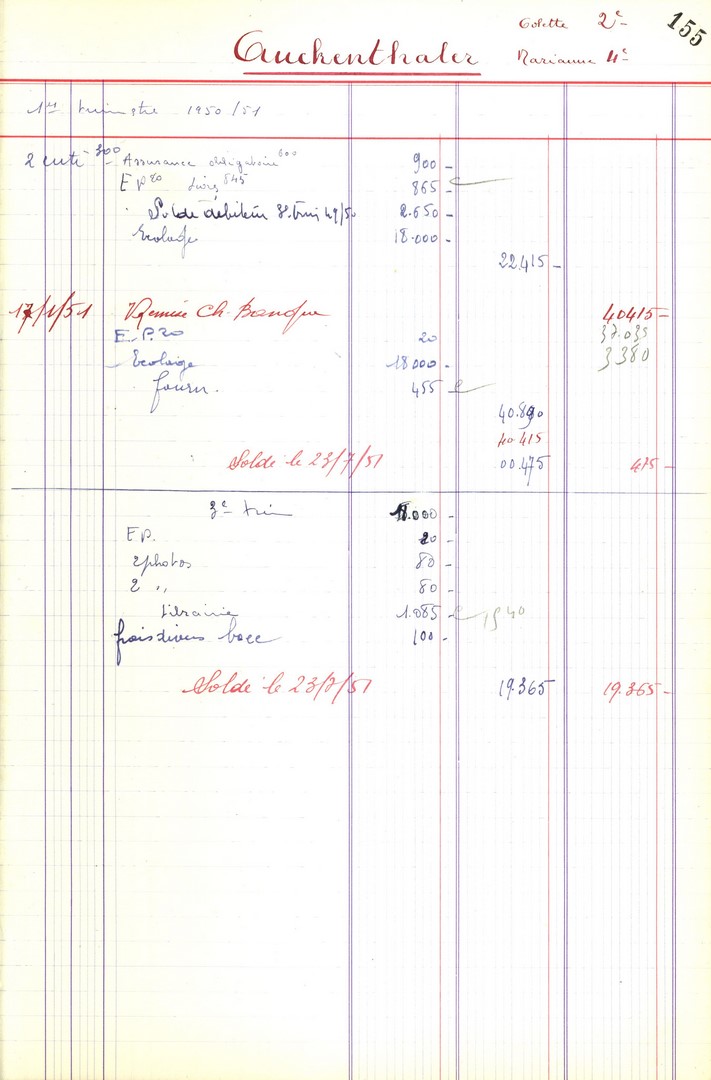 Colette 2e
155
Auckenthaler
Marianne 4e
1er trimestre 1950/51
2 cuté 300 - Assurance obligatoire 600 900 -
E P 20 livres 845 865 -
Solde débiteur 3e trim 49/50 2.650 -
Ecolage 18.000 -
22.415 -
17/1/51 Remise Ch. Banque 40415 -
E.P. 20 20 37.035
Ecolage 18000 - 3380
fourn. 455 -
40.890
40 415
Solde le 23/7/51 00.475 475 -
3e trim 18.000 -
E P. 20 -
2 photos 80 -
2 " 80 -
Librairie 1.085 - 1940
frais divers bacc 100 -
Solde le 23/7/51 19.365 19.365 -